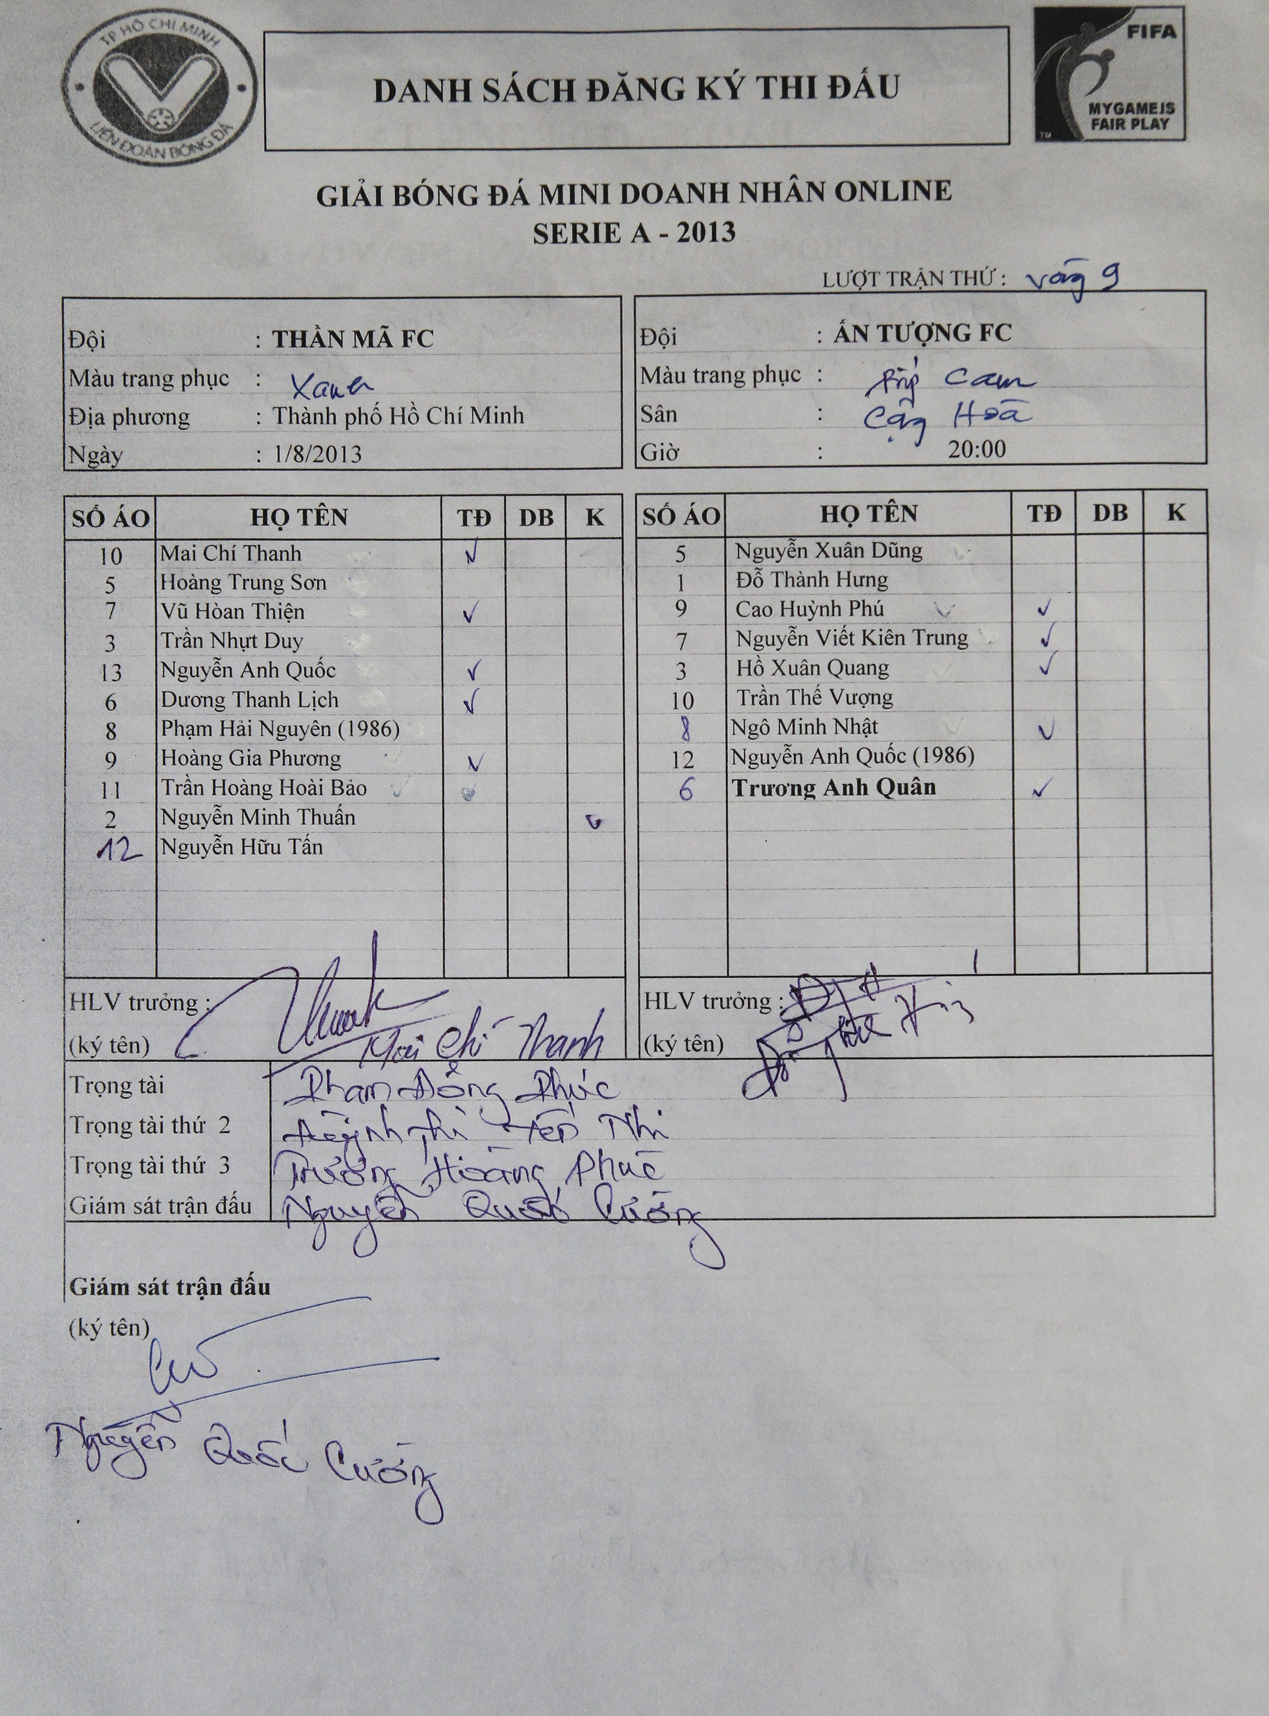 TP HỒ CHÍ MINH
LIÊN ĐOÀN BÓNG ĐÁ
DANH SÁCH ĐĂNG KÝ THI ĐẤU
FIFA
MY GAME IS
FAIR PLAY
TM
GIẢI BÓNG ĐÁ MINI DOANH NHÂN ONLINE
SERIE A - 2013
LƯỢT TRẬN THỨ : vòng 9
Đội : THẦN MÃ FC
Màu trang phục : Xanh
Địa phương : Thành phố Hồ Chí Minh
Ngày : 1/8/2013
Đội : ẤN TƯỢNG FC
Màu trang phục : cam
Sân : Cộng Hoà
Giờ : 20:00
SỐ ÁO HỌ TÊN TĐ DB K
10 Mai Chí Thanh ✓
5 Hoàng Trung Sơn
7 Vũ Hòan Thiện ✓
3 Trần Nhựt Duy
13 Nguyễn Anh Quốc ✓
6 Dương Thanh Lịch ✓
8 Phạm Hải Nguyên (1986)
9 Hoàng Gia Phương ✓
11 Trần Hoàng Hoài Bảo
2 Nguyễn Minh Thuấn
12 Nguyễn Hữu Tấn
SỐ ÁO HỌ TÊN TĐ DB K
5 Nguyễn Xuân Dũng
1 Đỗ Thành Hưng
9 Cao Huỳnh Phú ✓
7 Nguyễn Viết Kiên Trung ✓
3 Hồ Xuân Quang ✓
10 Trần Thế Vượng
8 Ngô Minh Nhật ✓
12 Nguyễn Anh Quốc (1986)
6 Trương Anh Quân ✓
HLV trưởng :
(ký tên) Mai Chí Thanh
HLV trưởng :
(ký tên)
Trọng tài Phạm Đồng Phúc
Trọng tài thứ 2 Huỳnh Thị Yến Nhi
Trọng tài thứ 3 Trương Hoàng Phúc
Giám sát trận đấu Nguyễn Quốc Cường
Giám sát trận đấu
(ký tên)
Nguyễn Quốc Cường